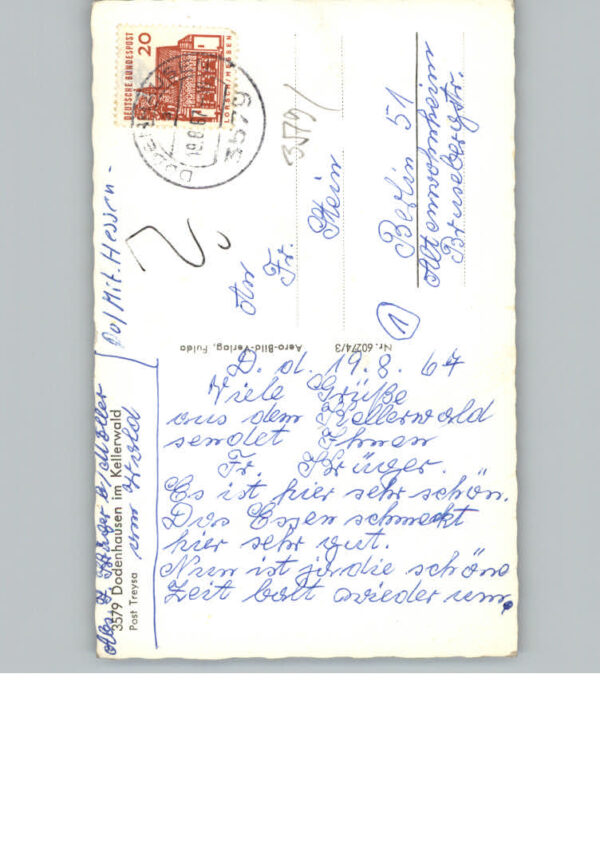 D. d. 19. 8. 67
Viele Grüße
aus dem Kellerwald
sendet Ihnen
Fr. Krüger.
Es ist hier sehr schön.
Das Essen schmeckt
hier sehr gut.
Nun ist ja die schöne
Zeit balt wieder um.
An
Fr. Stein
Berlin 51
Altenwohnheim
①
DEUTSCHE BUNDESPOST
20
LORSCH/HESSEN
19.8.67
3579
3579/
Nr. 60274/3
Aero-Bild-Verlag, Fulda
Abs. Krüger
3579 Dodenhausen im Kellerwald
Post Treysa